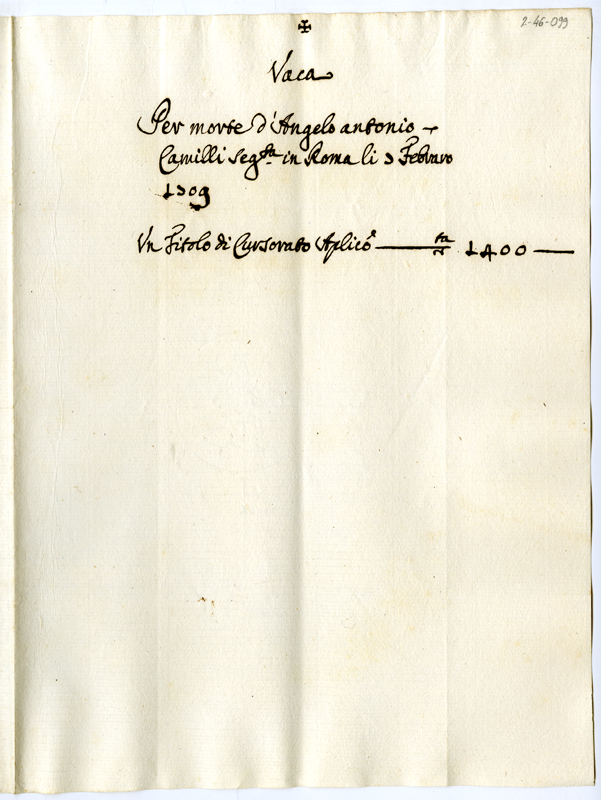 2-46-099
✠
Vaca
Per morte d'Angelo antonio
Camilli segta in Roma li 3 Febraro
1709
Vn Titolo di Cursorato Aplico 1400